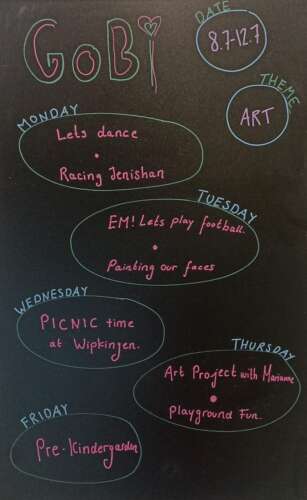 GoBi
DATE
8.7-12.7
THEME
ART
MONDAY
Lets dance
•
Racing Jenishan
TUESDAY
EM! Lets play football.
•
Painting our faces
WEDNESDAY
PICNIC time
at Wipkingen.
THURSDAY
Art Project with Marianne
•
Playground Fun.
FRIDAY
Pre-Kindergarden